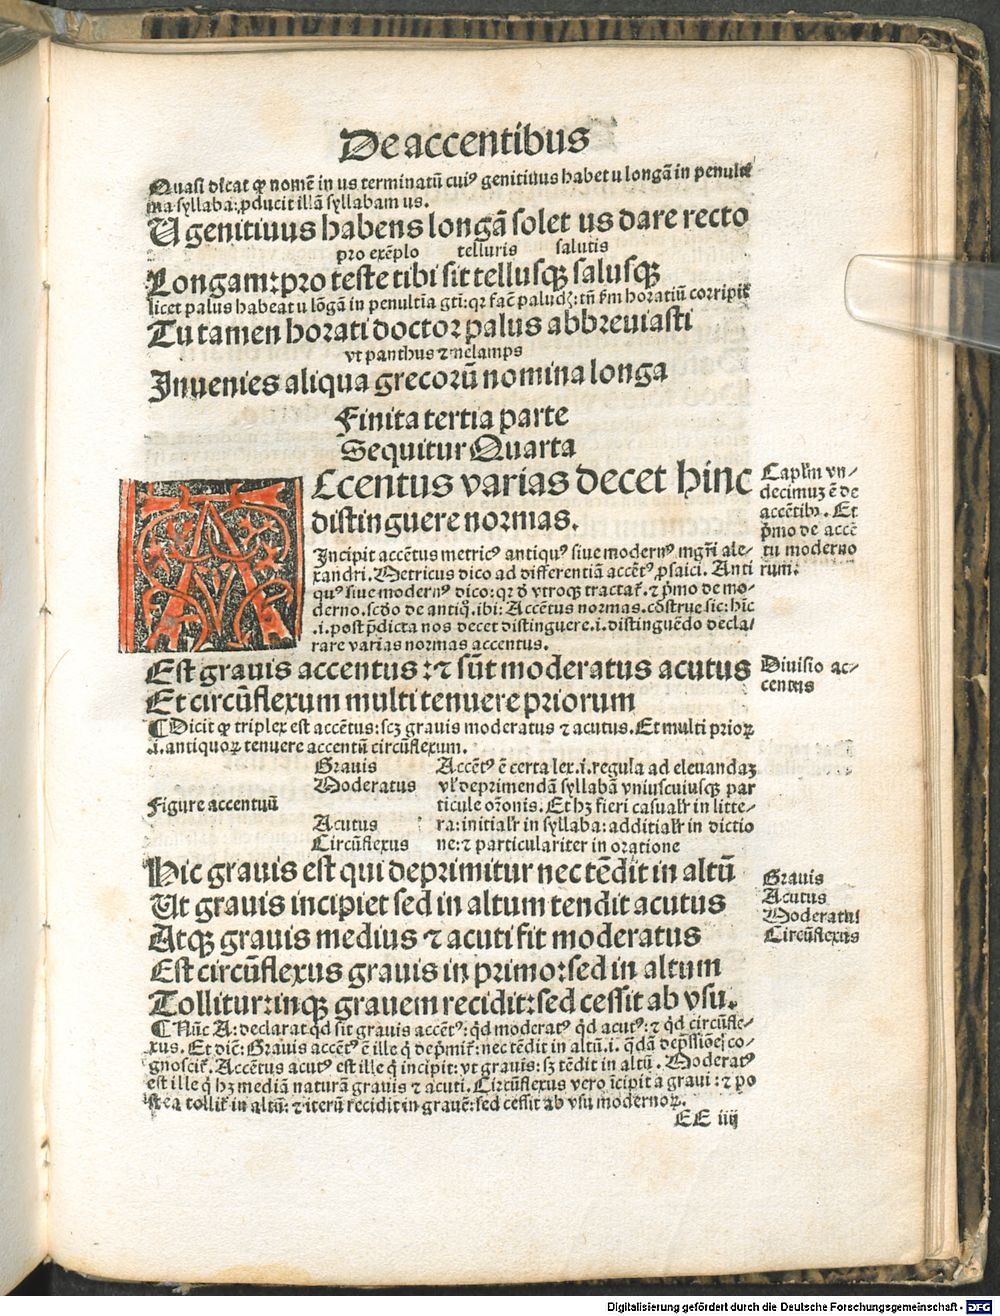 De accentibus
Quasi dicat ꝙ nomē in us terminatū cuiꝰ genitiuus habet u longā in penulti
ma syllaba: ꝓducit illā syllabam us.
U genitiuus habens longā solet us dare recto
pro exēplo telluris salutis
Longam: pro teste tibi sit tellusqꝫ salusqꝫ
licet palus habeat u lōgā in penultia gti: qꝛ facit paludꝫ: tn̄ ẜm horatiū corripit̄
Tu tamen horati doctor palus abbreuiasti
vt panthus ⁊ melampus
Inuenies aliqua grecorū nomina longa
Finita tertia parte
Sequitur Quarta
ACcentus varias decet hinc
distinguere normas.
Incipit accētus metricꝰ antiquꝰ siue modernꝰ mgr̄i ale-
xandri. Metricus dico ad differentiā accētꝰ ꝓsaici. Anti
quꝰ siue modernꝰ dico: qꝛ d̄ vtroqꝫ tractat̄. ⁊ p̄mo de mo-
derno. scd̄o de antiqͦ. ibi: Accētus normas. cōstrue sic: hīc
.i. post p̄dicta nos decet distinguere .i. distinguēdo decla/
rare varias normas accentus.
Capl'm vn-
decimuꝫ ē de
accētibꝫ. Et
p̄mo de accē
tu moderno
rum.
Est grauis accentus: ⁊ sūt moderatus acutus
Et circūflexum multi tenuere priorum
Diuisio ac-
centus
¶ Dicit ꝙ triplex est accētus: scꝫ grauis moderatus ⁊ acutus. Et multi prioꝝ
.i. antiquoꝝ tenuere accentū circūflexum.
Figure accentuū
Grauis
Moderatus
Acutus
Circūflexus
Accētꝰ ē certa lex .i. regula ad eleuandaꝫ
vl' deprimendā syllabā vniuscuiusqꝫ par
ticule or̄onis. Et hꝫ fieri casual'r in litte-
ra: initial'r in syllaba: additial'r in dictio
ne: ⁊ particulariter in oratione
Hic grauis est qui deprimitur nec tēdit in altū
Ut grauis incipiet sed in altum tendit acutus
Atqꝫ grauis medius ⁊ acuti fit moderatus
Est circūflexus grauis in primo: sed in altum
Tollitur: inqꝫ grauem recidit: sed cessit ab vsu.
Grauis
Acutus
Moderatus
Circūflexus
¶ Nūc A: declarat qd̄ sit grauis accētꝰ: qd̄ moderatꝰ qd̄ acutꝰ: ⁊ qd̄ circūfle-
xus. Et dicit: Grauis accētꝰ ē ille q̇ dep̄mit̄: nec tēdit in altū .i. qͣdā dep̄ssiōe co-
gnoscit̄. Accētus acutꝰ est ille q̇ incipit: vt grauis: sꝫ tēdit in altū. Moderatꝰ
est ille q̇ hꝫ mediā naturā grauis ⁊ acuti. Circūflexus vero īcipit a graui: ⁊ po
stea tollit̄ in altū: ⁊ iterū recidit in grauē: sed cessit ab vsu modernoꝝ.
EE iiij
Digitalisierung gefördert durch die Deutsche Forschungsgemeinschaft - DFG